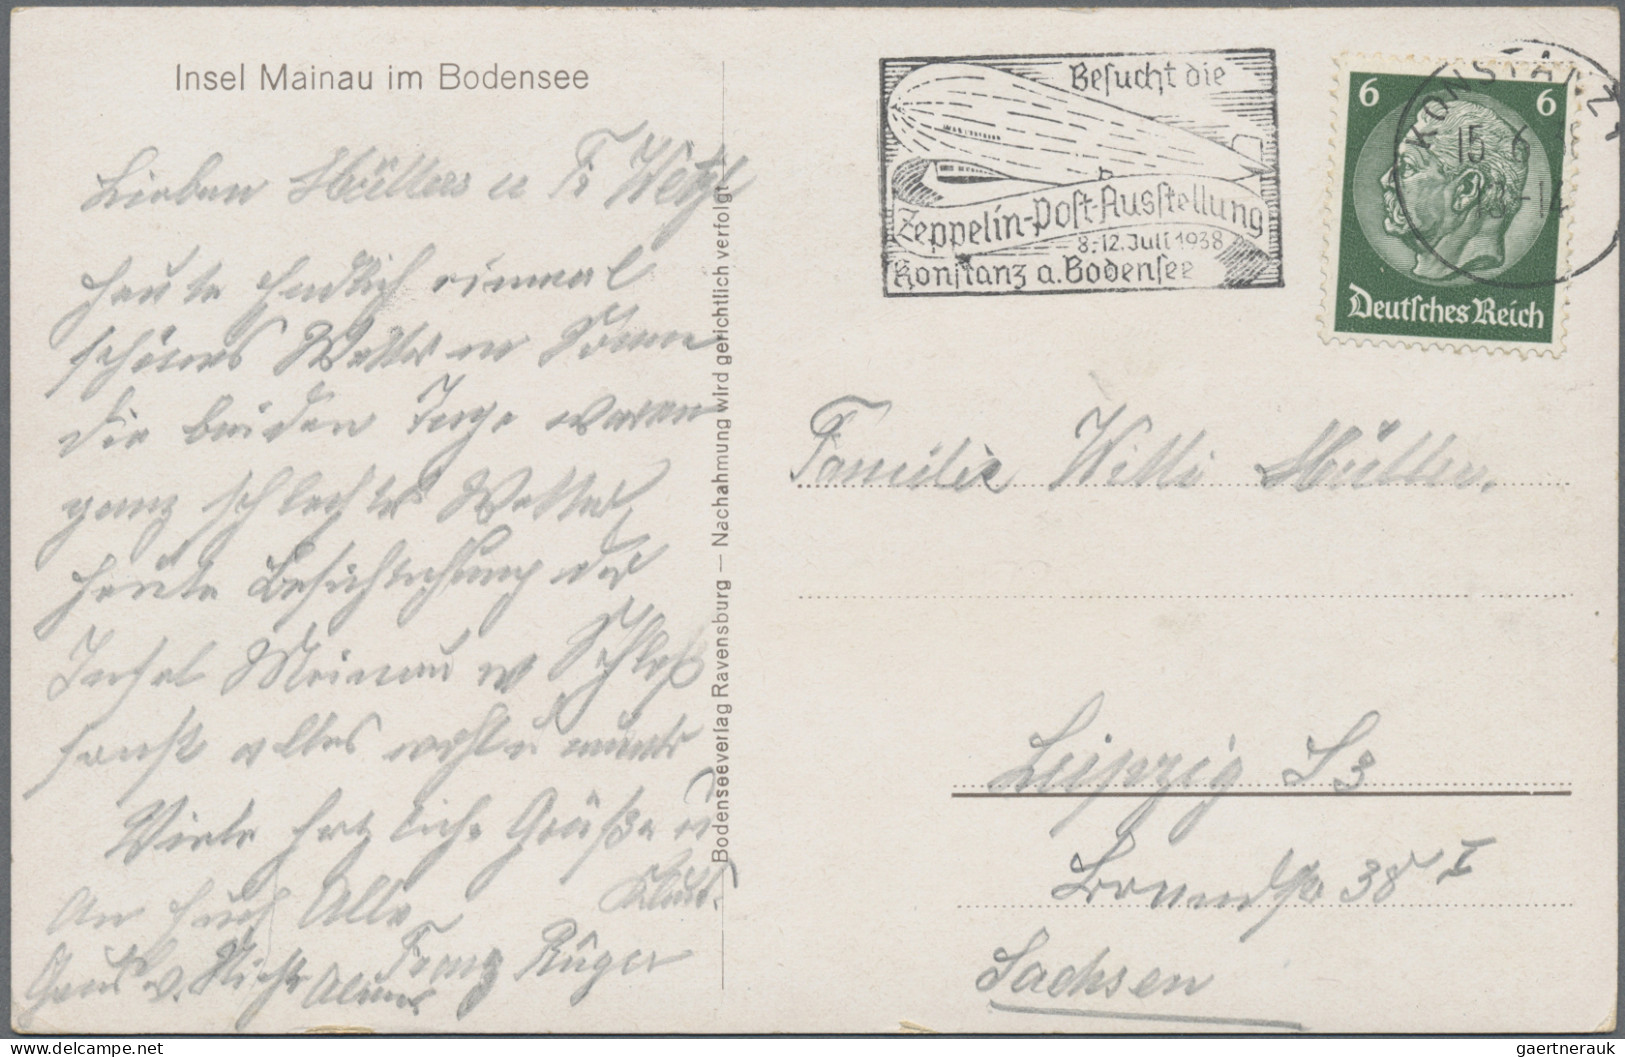 Insel Mainau im Bodensee
Lieben Müllers u Fr
heute endlich einmal
schönes Wetter u Sonne
die beiden Tage waren
ganz schlechtes Wetter,
heute Besichtigung der
Insel Meinau u Schloß
sonst alles wohl u munter
Viele herzliche Grüße u
An Euch Alle
Franz Rüger
Bodenseeverlag Ravensburg — Nachahmung wird gerichtlich verfolgt
Besucht die
Zeppelin-Post-Ausstellung
8.-12. Juli 1938
Konstanz a. Bodensee
KONSTANZ
15.6
13-14
6 6
Deutsches Reich
Familie Willi Müller.
Leipzig S3
38 I
Sachsen
gaertnerauk
www.delcampe.net